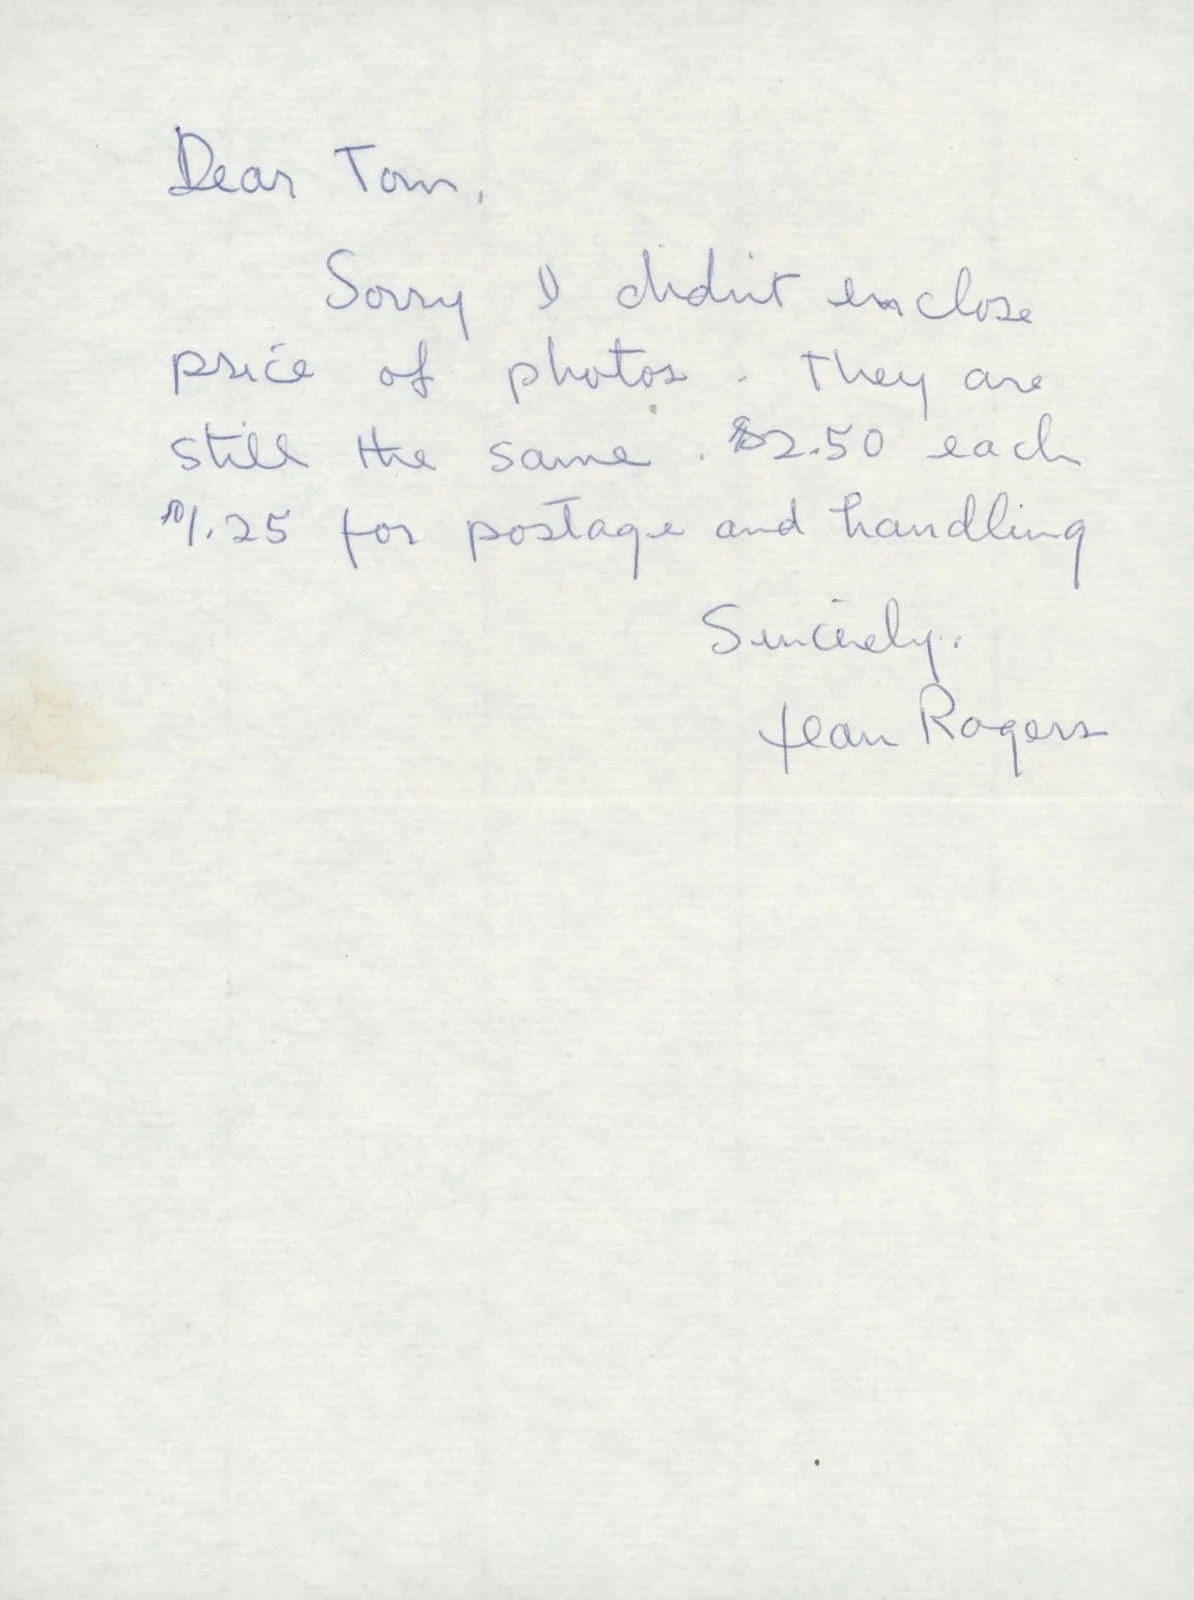 Dear Tom,
Sorry I didn't enclose
price of photos. They are
still the same. $2.50 each
$1.25 for postage and handling
Sincerely,
Jean Rogers